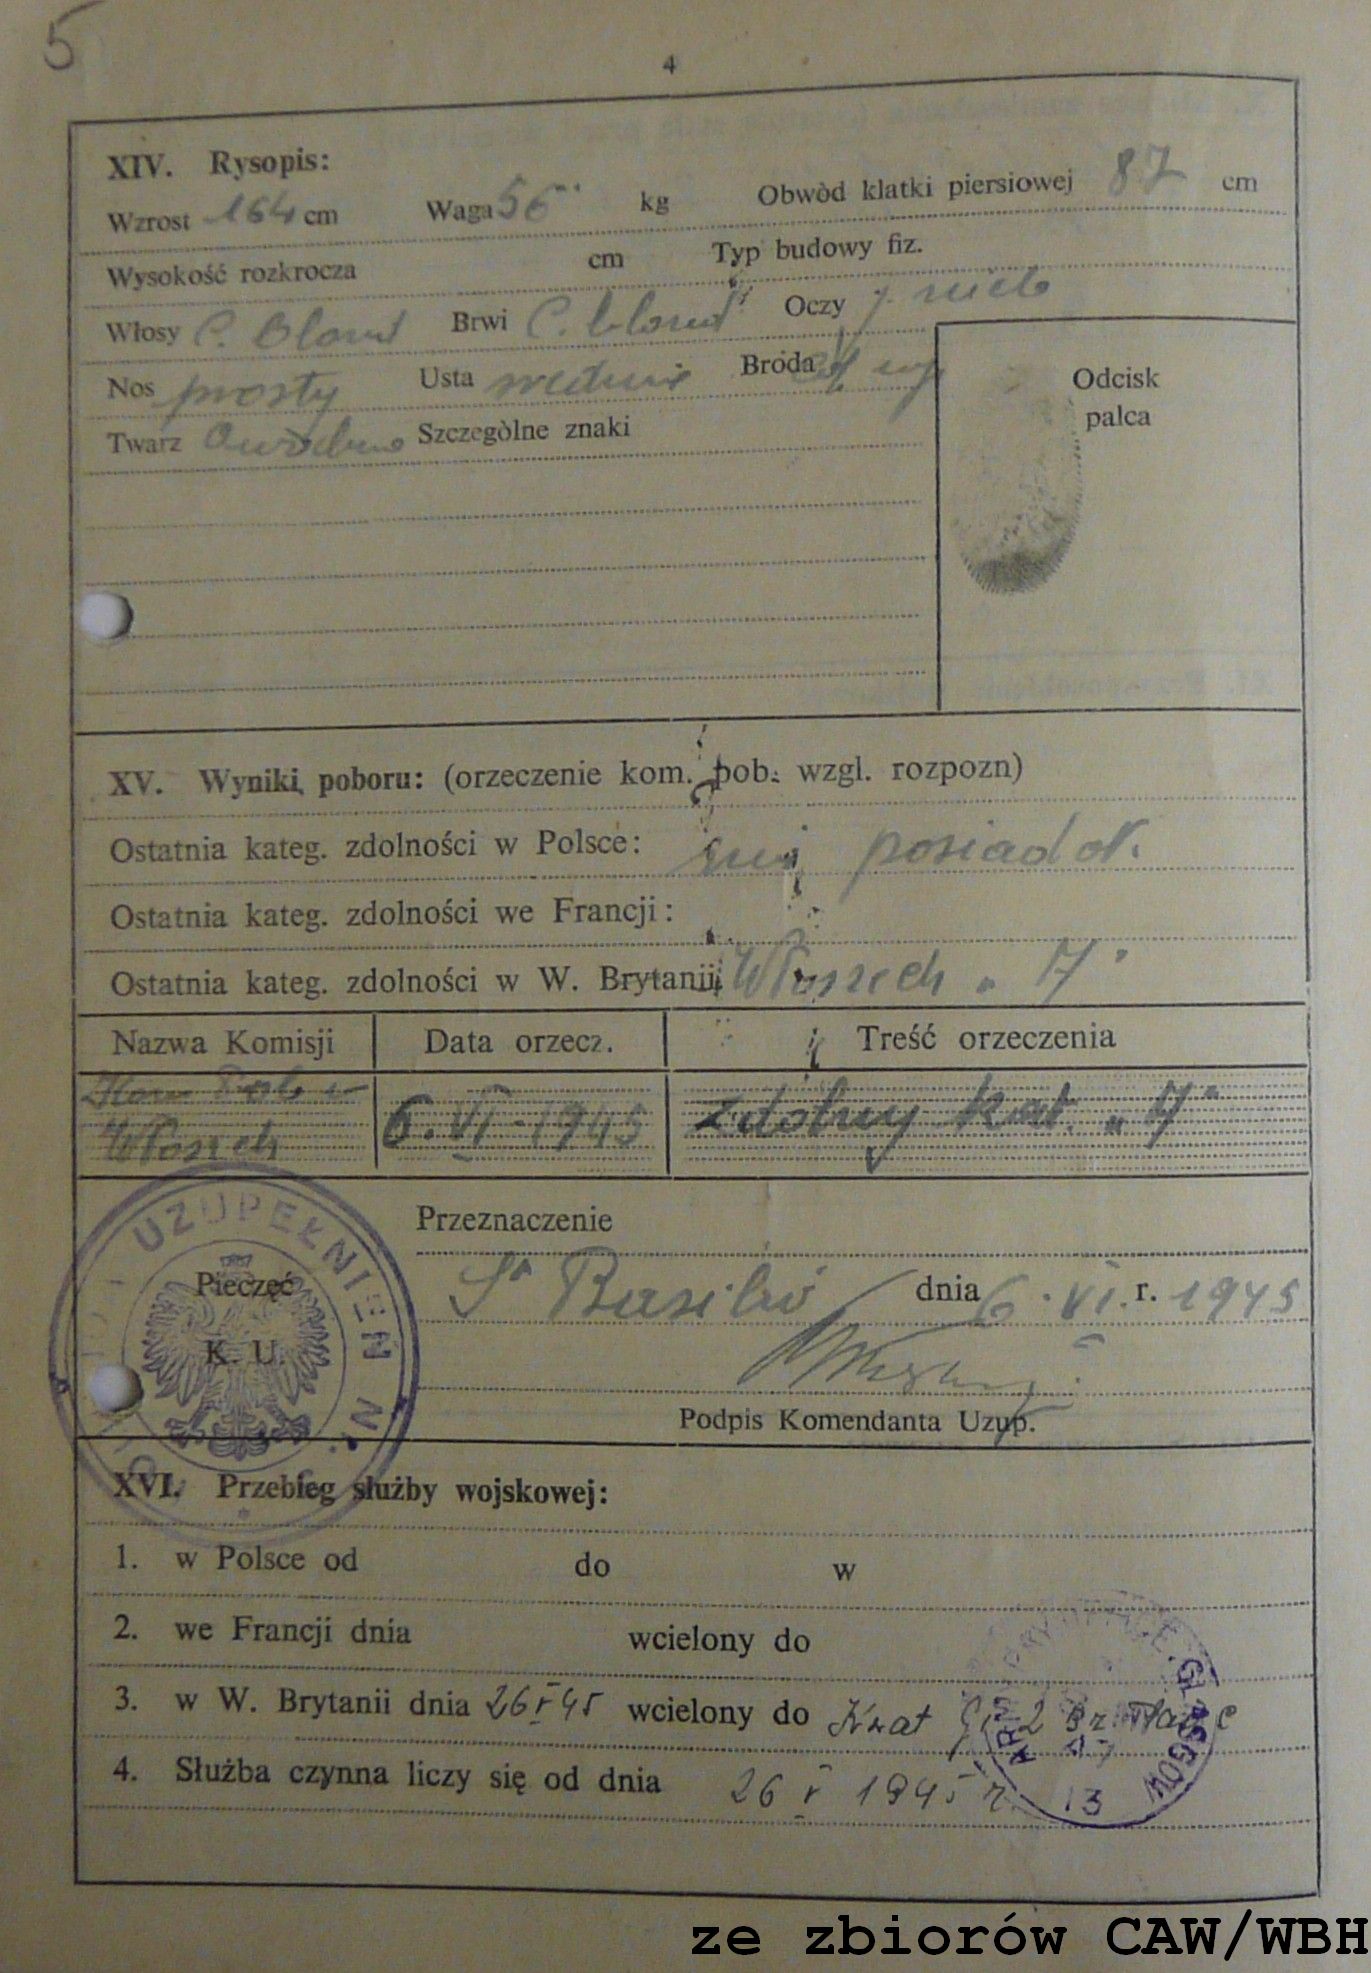 5
4
XIV. Rysopis:
Wzrost 164 cm Waga 56 kg Obwòd klatki piersiowej 87 cm
Wysokość rozkrocza cm Typ budowy fiz.
Włosy C. Blond Brwi C. blond Oczy
Nos prosty Usta średnie Broda
Twarz Szczegòlne znaki
Odcisk
palca
XV. Wyniki poboru: (orzeczenie kom. pob. wzgl. rozpozn)
Ostatnia kateg. zdolności w Polsce: posiadał.
Ostatnia kateg. zdolności we Francji:
Ostatnia kateg. zdolności w W. Brytanii Włoszech
Nazwa Komisji Data orzecz. Treść orzeczenia
Kom Pob w
Włoszech 6.VI-1945 Zdolny kat.
UZUPEŁNIEŃ Nr.
Pieczęć
K. U.
Przeznaczenie
dnia 6.VI. r. 1945
Podpis Komendanta Uzup.
XVI. Przebieg służby wojskowej:
1. w Polsce od do w
2. we Francji dnia wcielony do
3. w W. Brytanii dnia 26 V 45 wcielony do 2
4. Służba czynna liczy się od dnia 26 V 1945 r.
GLASGOW
13
ze zbiorów CAW/WBH